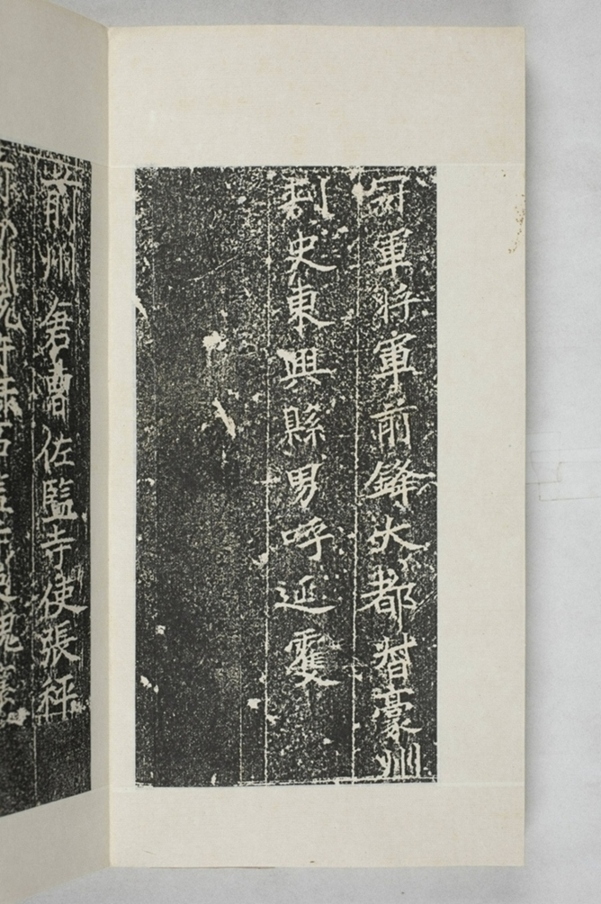 冠軍將軍前鋒大都督豪州
刺史東興縣男呼延夔
前州倉曹佐監寺使張秤